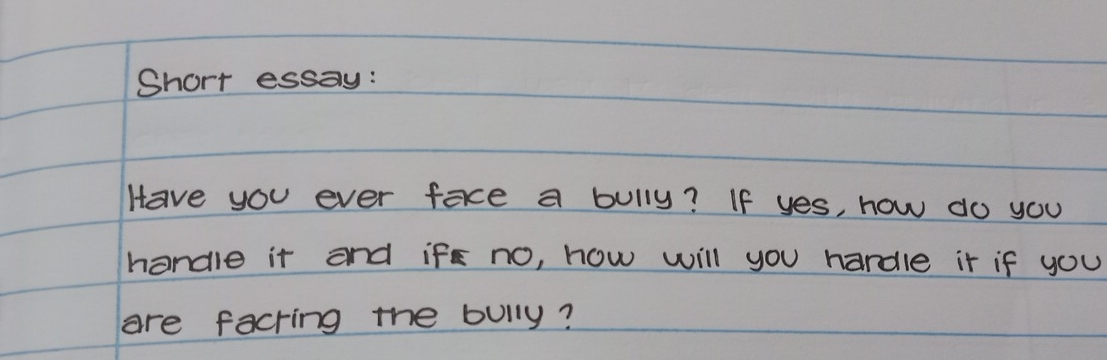 Short essay:
Have you ever face a bully? If yes, how do you
handle it and if no, how will you handle it if you
are facting the bully?